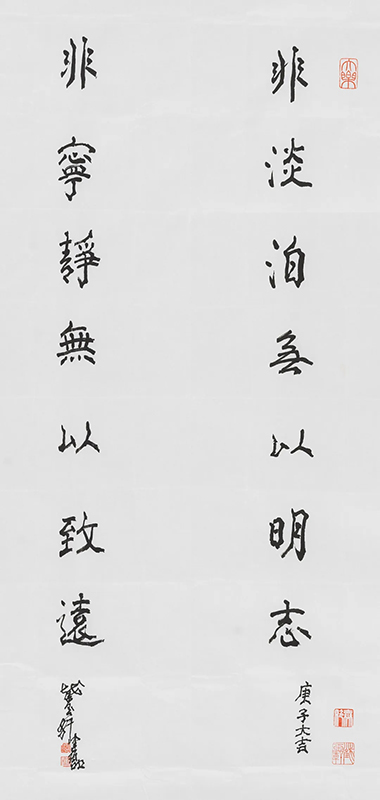 非淡泊無以明志
庚子大吉
非寧靜無以致遠